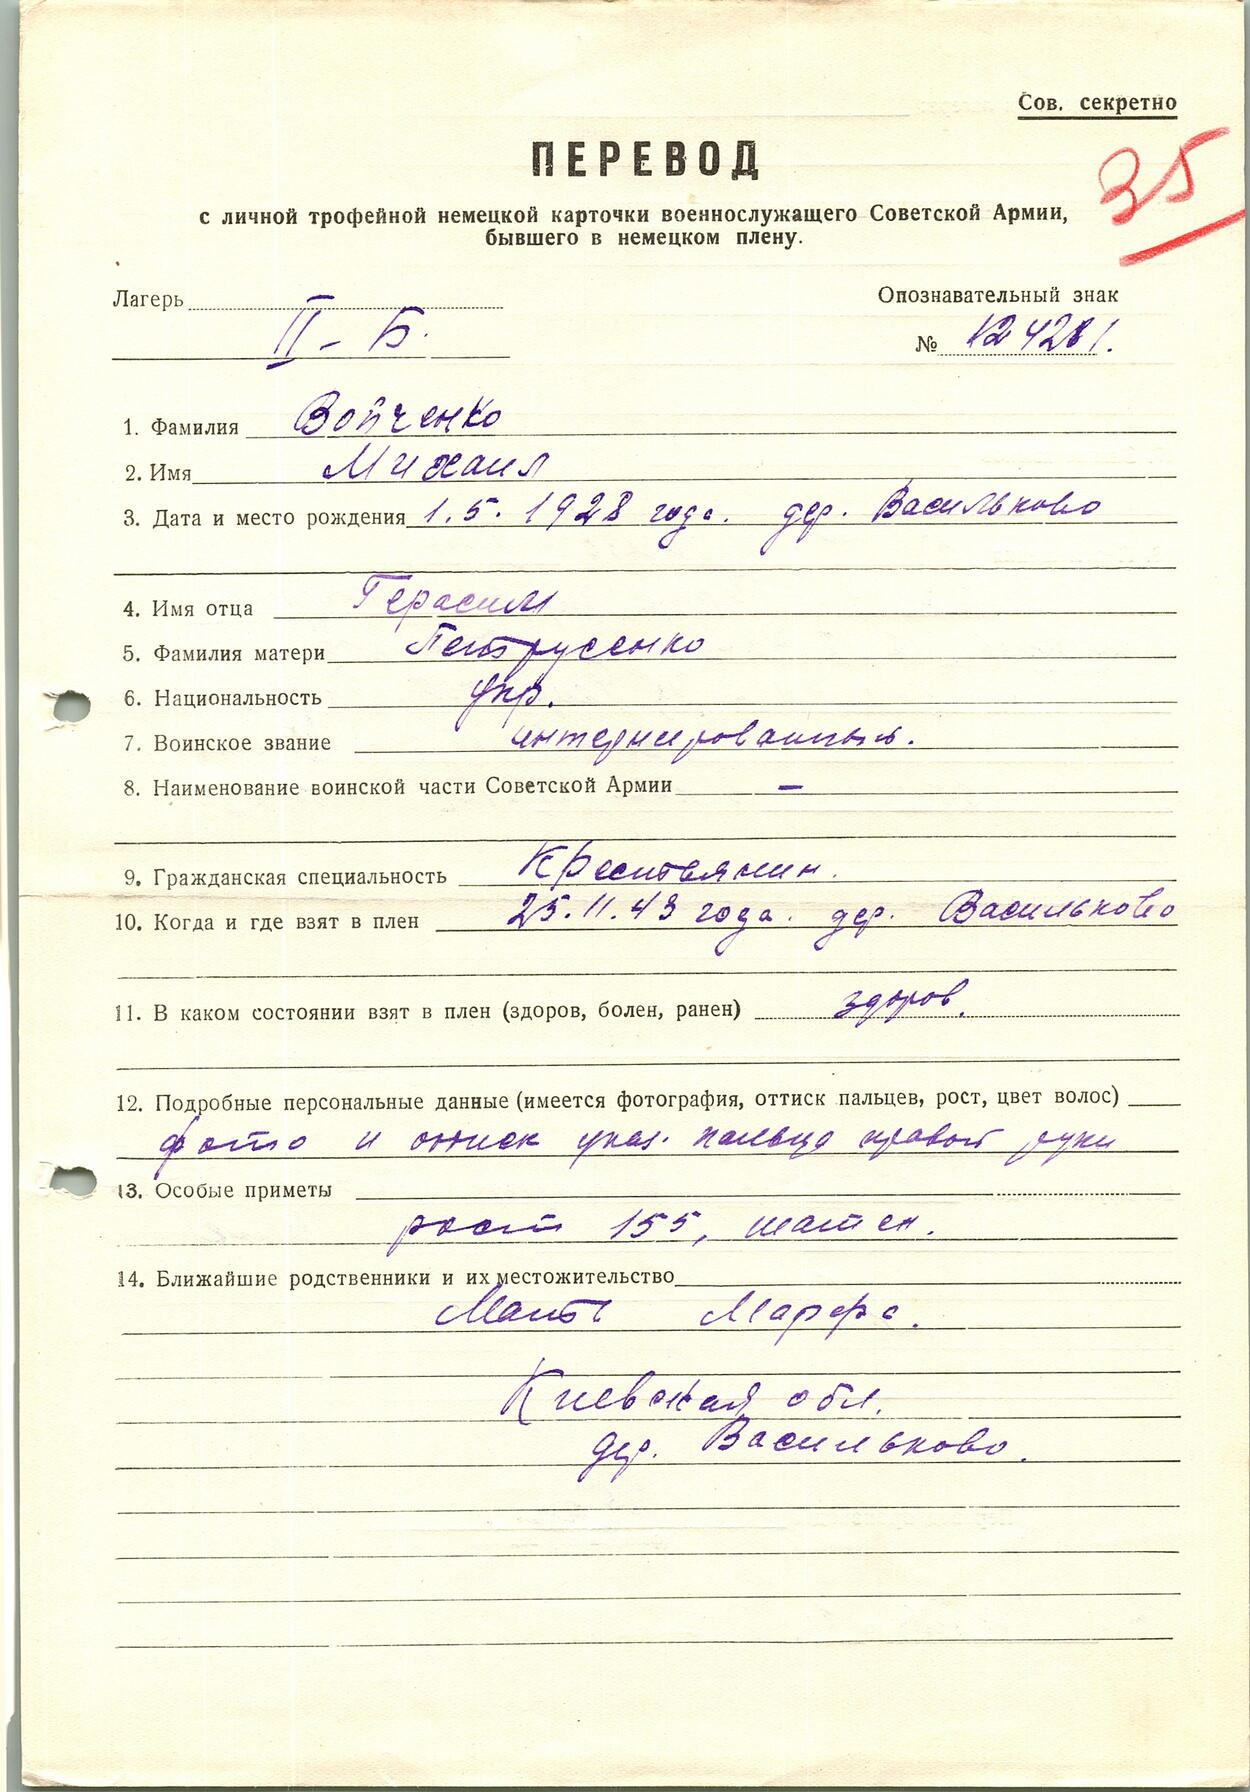 Сов. секретно
35
ПЕРЕВОД
с личной трофейной немецкой карточки военнослужащего Советской Армии,
бывшего в немецком плену.
Лагерь
Опознавательный знак
II - Б.
№ 124281.
1. Фамилия Войченко
2. Имя Михаил
3. Дата и место рождения 1.5.1928 года. дер. Васильково
4. Имя отца Герасим
5. Фамилия матери Петрусенко
6. Национальность укр.
7. Воинское звание интернированный.
8. Наименование воинской части Советской Армии —
9. Гражданская специальность Крестьянин.
10. Когда и где взят в плен 25.11.43 года. дер. Васильково
11. В каком состоянии взят в плен (здоров, болен, ранен) здоров.
12. Подробные персональные данные (имеется фотография, оттиск пальцев, рост, цвет волос)
фото и оттиск указ. пальца правой руки
13. Особые приметы
рост 155, шатен.
14. Ближайшие родственники и их местожительство
Мать Марфа.
Киевская обл.
дер. Васильково.